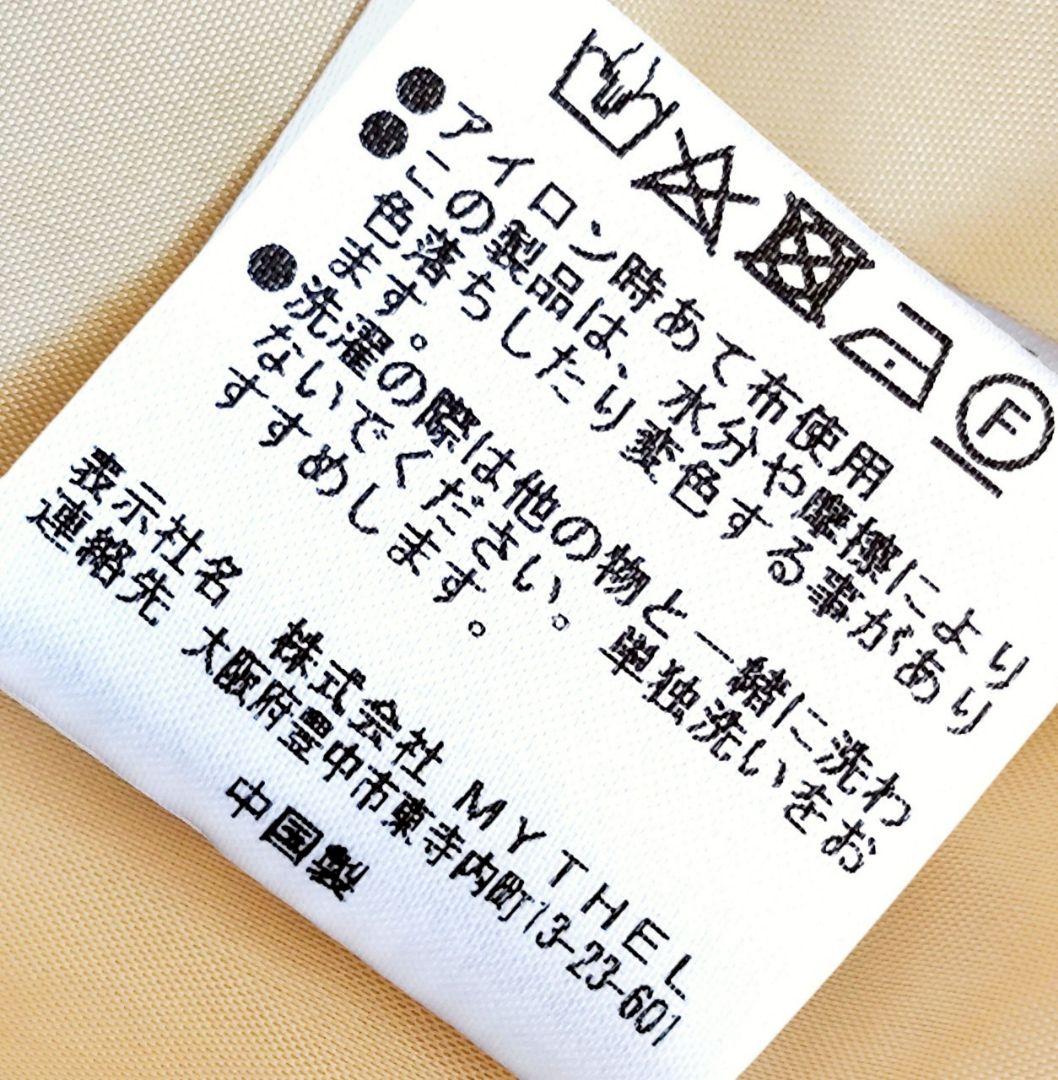 F
●アイロン時あて布使用
●この製品は、水分や摩擦により
色落ちしたり変色する事があり
ます。
●洗濯の際は他の物と一緒に洗わ
ないでください。単独洗いをお
すすめします。
表示社名 株式会社 MYTHEL
連絡先 大阪府豊中市東寺内町13-23-601
中国製